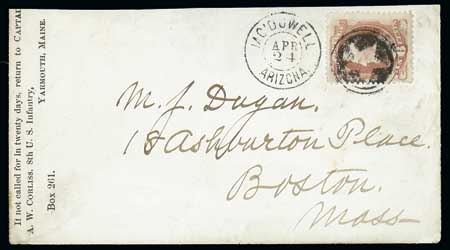 If not called for in twenty days, return to CAPTAI
A. W. CORLISS, 8th U. S. Infantry,
YARMOUTH, MAINE.
Box 261.
McDOWELL
APR
24
ARIZONA
M. J. Dugan.
18 Ashburton Place.
Boston.
Mass-